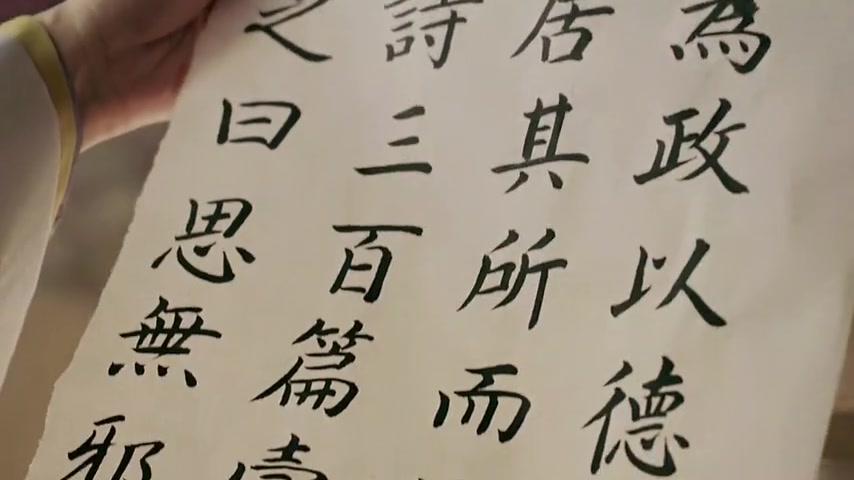 為政以德
居其所而
詩三百篇
之曰思無邪